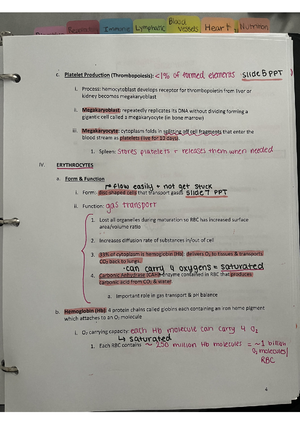 Immune
Lymphatic
Blood
Vessels
Heart
Nutrition
c. Platelet Production (Thrombopoiesis): <1% of formed elements slide 6 PPT
i. Process: hemocytoblast develops receptor for thrombopoietin from liver or
kidney becomes megakaryoblast
ii. Megakaryoblast: repeatedly replicates its DNA without dividing forming a
gigantic cell called a megakaryocyte (in bone marrow)
iii. Megakaryocyte: cytoplasm folds in splitting off cell fragments that enter the
blood stream as platelets (live for 10 days)
1. Spleen: stores platelets + releases them when needed
IV. ERYTHROCYTES
a. Form & Function
flow easily + not get stuck
i. Form: disc-shaped cells that transport gases slide 7 PPT
ii. Function: gas transport
1. Lost all organelles during maturation so RBC has increased surface
area/volume ratio
2. Increases diffusion rate of substances in/out of cell
3. 33% of cytoplasm is hemoglobin (Hb): delivers O2 to tissues & transports
CO2 back to lungs
can carry 4 oxygens = saturated
4. Carbonic Anhydrase (CAH): enzyme contained in RBC that produces
carbonic acid from CO2 & water
a. Important role in gas transport & pH balance
b. Hemoglobin (Hb): 4 protein chains called globins each containing an iron home pigment
which attaches to an O2 molecule
i. O2 carrying capacity: each Hb molecule can carry 4 O2
↳ saturated
1. Each RBC contains ~ 250 million Hb molecules = ~1 billion
O2 molecules/
RBC